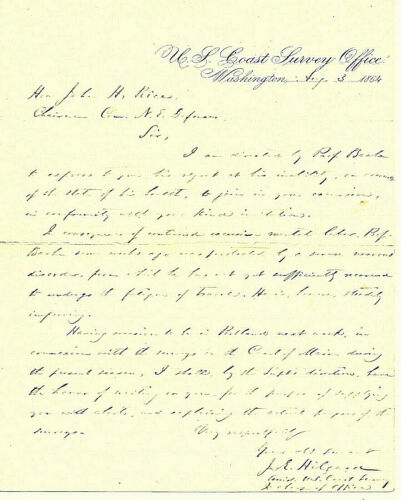 U. S. Coast Survey Office
Washington, Aug. 3 1864
Hon John H. Rice
Chairman Com. N. E. Defences
Sir,
I am directed by Prof Bache
to express to you his regret at his inability, on account
of the state of his health, to join in your excursion,
in conformity with your kind invitation.
In consequence of continued excessive mental labor, Prof.
Bache some weeks ago was prostrated by a severe nervous
disorder, from which he has not yet sufficiently recovered
to undergo the fatigues of travel. He is, however, steadily
improving.
Having occasion to be in Portland next week, in
connexion with the surveys on the Coast of Maine during
the present season, I shall, by the Supt's direction, have
the honor of waiting on you for the purpose of supplying
you with charts, and explaining the extent & progress of the
surveys.
Very respectfully
Your obt servant
J. E. Hilgard
Assist. U.S. Coast Survey
In charge of Office